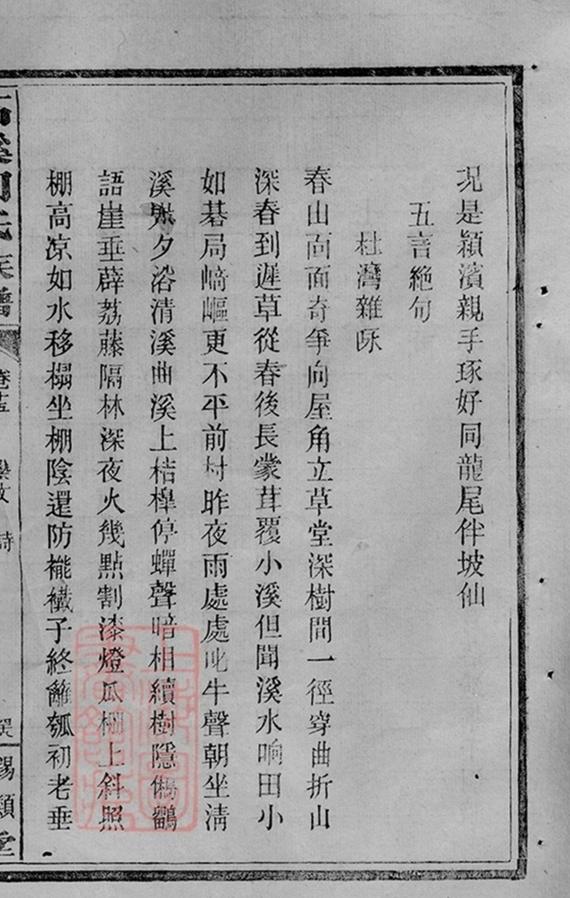 况是潁濱親手琢好同龍尾伴坡仙
五言絕句
杜灣雜咏
春山面面奇爭向屋角立草堂深樹間一徑穿曲折山
深春到遲草從春後長蒙茸覆小溪但聞溪水响田小
如碁局崎嶇更不平前村昨夜雨處處叱牛聲朝坐清
溪夕浴清溪曲溪上桔橰停蟬聲暗相續樹隱
語崖垂薜荔藤隔林深夜火幾點割漆燈瓜棚上斜照
棚高凉如水移榻坐棚陰還防褦襶子終籬瓠初老垂
氏族譜
詩
錫類堂